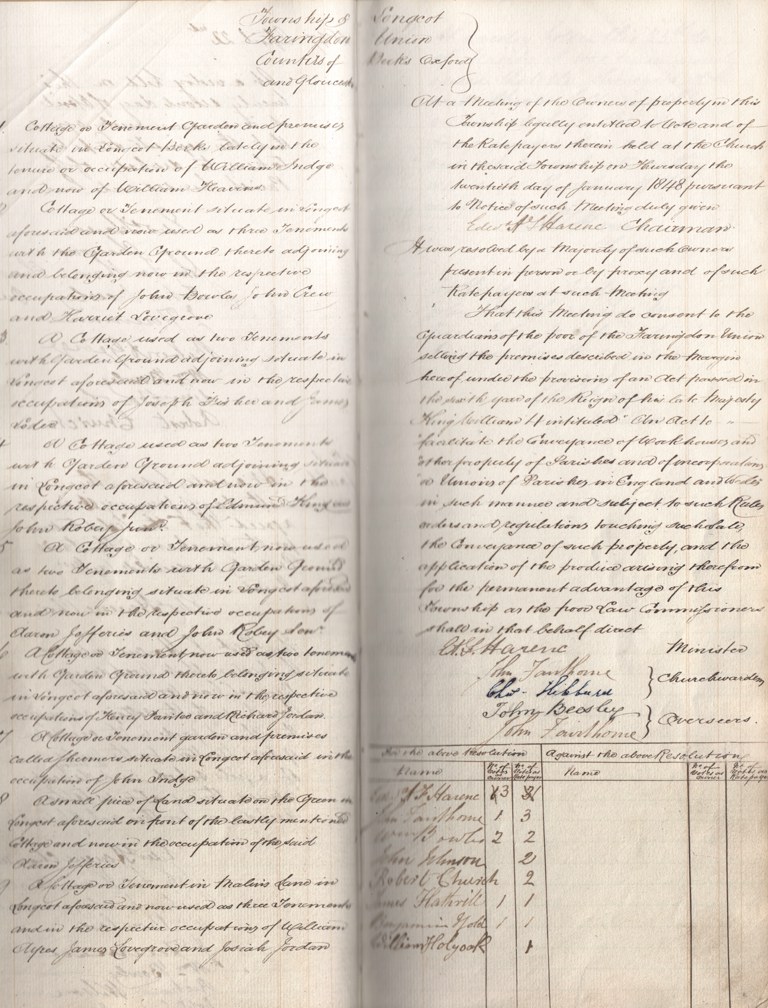 Township of Longcot
Faringdon Union
Counties of Berks Oxford
and Gloucester
1. Cottage or Tenement Garden and premises
situate in Longcot Berks lately in the
tenure or occupation of William Indge
and now of William Heavens
2 Cottage or Tenement situate in Longcot
aforesaid and now used as three Tenements
with the Garden Ground thereto adjoining
and belonging now in the respective
occupations of John Bowles John Crew
and Harriet Lovegrove
3 A Cottage used as two Tenements
with Garden Ground adjoining situate in
Longcot aforesaid and now in the respective
occupations of Joseph Fisher and James
4 A Cottage used as two Tenements
with Garden Ground adjoining situate
in Longcot aforesaid and now in the
respective occupations of Edmund King and
John Robey Junr
5 A Cottage or Tenement now used
as two Tenements with Garden Ground
thereto belonging situate in Longcot aforesaid
and now in the respective occupations of
Aaron Jefferies and John Robey Senr
6 A Cottage or Tenement now used as two tenements
with Garden Ground thereto belonging situate
in Longcot aforesaid and now in the respective
occupations of Henry and Richard Jordan
7 A Cottage or Tenement garden and premises
called situate in Longcot aforesaid in the
occupation of John Indge
8 A small piece of Land situate on the Green in
Longcot aforesaid in front of the lastly mentioned
Cottage and now in the occupation of the said
Aaron Jefferies
9 A Cottage or Tenement in Lane in
Longcot aforesaid and now used as three Tenements
and in the respective occupations of William
Ayres James Lovegrove and Josiah Jordan
At a Meeting of the Owners of property in this
Township legally entitled to Vote and of
the Ratepayers therein held at the Church
in the said Township on Thursday the
twentieth day of January 1848 pursuant
to Notice of such Meeting duly given
Edwd H S Harene Chairman
It was resolved by a Majority of such Owners
present in person or by proxy and of such
Ratepayers at such Meeting
That this Meeting do consent to the
Guardians of the poor of the Faringdon Union
selling the premises described in the Margin
hereof under the provisions of an Act passed in
the sixth year of the Reign of his late Majesty
King William 4 intituled "An Act to
"facilitate the Conveyance of Workhouses and
"other property of Parishes and of incorporations
or Unions of Parishes in England and Wales
in such manner and subject to such Rules
orders and regulations touching such Sale,
the Conveyance of such property, and the
application of the produce arising therefrom
for the permanent advantage of this
Township as the poor Law Commissioners
shall in that behalf direct
Harene Minister
Jhn Fawthorne
Chas Hibberd
} Churchwardens
John Beesley
John Fawthorne
} Overseers.
For the above Resolution Against the above Resolution
Name No of Votes as Owner No of Votes as Ratepayer Name No of Votes as Owner No of Votes as Ratepayer
Harene 3
Jhn Fawthorne 1 3
Wm Bowles 2 2
John Johnson 2
Robert Church 2
James 1 1
Benjamin 1 1
William Holyoak 1